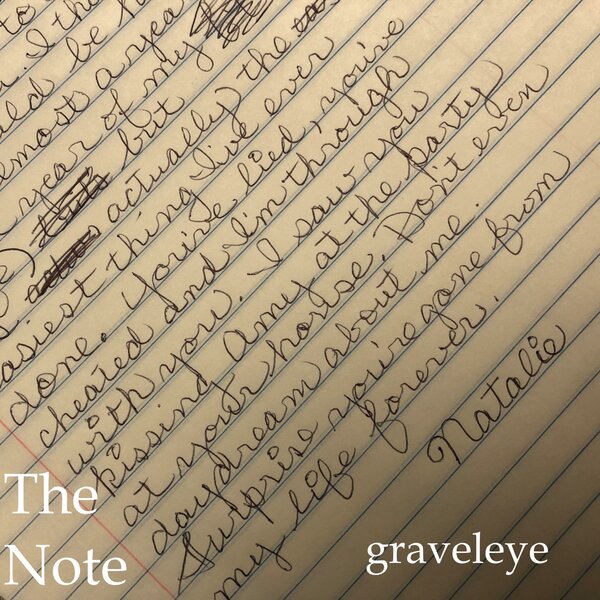 to
be
almost a yea
year of my
but
actually, the
easiest thing I've ever
done. You've lied, you've
cheated and I'm through
with you. I saw you
kissing Amy at the party
at your house. Don't even
daydream about me.
Surprise you're gone from
my life forever.
Natalie
The
Note
graveleye